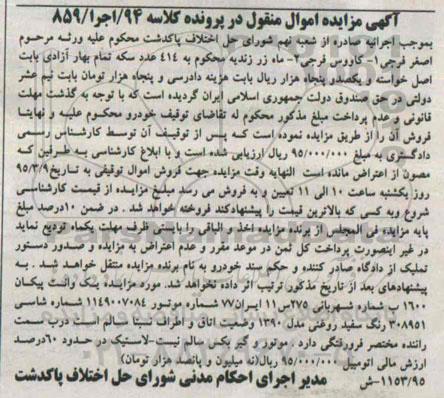 آگهی مزایده اموال منقول در پرونده کلاسه ۹۴/اجرا/۸۵۹
بموجب اجرائیه صادره از شعبه نهم شورای حل اختلاف پاکدشت محکوم علیه ورثه مرحوم
اصغر فرجی۱- کاووس فرجی۲- ماه زر زندیه محکوم به ۴۱۴ عدد سکه تمام بهار آزادی بابت
اصل خواسته و یکصدو پنجاه هزار ریال بابت هزینه دادرسی و پنجاه هزار تومان بابت نیم عشر
دولتی در حق صندوق دولت جمهوری اسلامی ایران گردیده است که با توجه به گذشت مهلت
قانونی و عدم پرداخت مبلغ مذکور محکوم له تقاضای توقیف خودرو محکوم علیه و نهایتا
فروش آن را از طریق مزایده نموده است که پس از توقیف آن توسط کارشناس رسمی
دادگستری به مبلغ ۹۵/۰۰۰/۰۰۰ ریال ارزیابی شده است و با ابلاغ کارشناسی به طرفین که
مصون از اعتراض مانده است النهایه وقت مزایده جهت فروش اموال توقیفی به تاریخ۹۵/۳/۹
روز یکشنبه ساعت ۱۰ الی ۱۱ تعیین و به فروش می رسد مبلغ مزایده از قیمت کارشناسی
شروع وبه کسی که بالاترین قیمت را پیشنهادکند فروخته خواهد شد . در ضمن ۱۰درصد مبلغ
پایه مزایده فی المجلس از برنده مزایده اخذ و الباقی را بایستی ظرف مهلت یکماه تودیع نماید
در غیر اینصورت پرداخت کل ثمن در موعد مقرر و عدم اعتراض به مزایده و صدور دستور
تملیک از دادگاه صادر کننده و حکم سند خودرو به نام برنده مزایده منتقل خواهد شد . به
پیشنهادهای بعد از تاریخ مذکور ترتیب اثر داده نخواهد شد. مورد مزایده یک وانت پیکان
۱۶۰۰ ب شماره شهربانی ۲۷۵س۱۱ ایران۷۷ شماره موتور ۱۱۴۹۰۰۷۰۸۴ شماره شاسی
۳۰۸۹۵۱ رنگ سفید روغنی مدل ۱۳۹۰ وضعیت اتاق و اطراف نسبتا سالم لیک درب سمت
راننده مختصر فرورفتگی دارد -موتور و گیر بکس سالم نیست-لاستیک در حدود ۶۰درصد
ارزش مالی اتومبیل ۹۵/۰۰۰/۰۰۰ ریال(نه میلیون و پانصد هزار تومان)
۱۱۵۳/۹۵-ش مدیر اجرای احکام مدنی شورای حل اختلاف پاکدشت